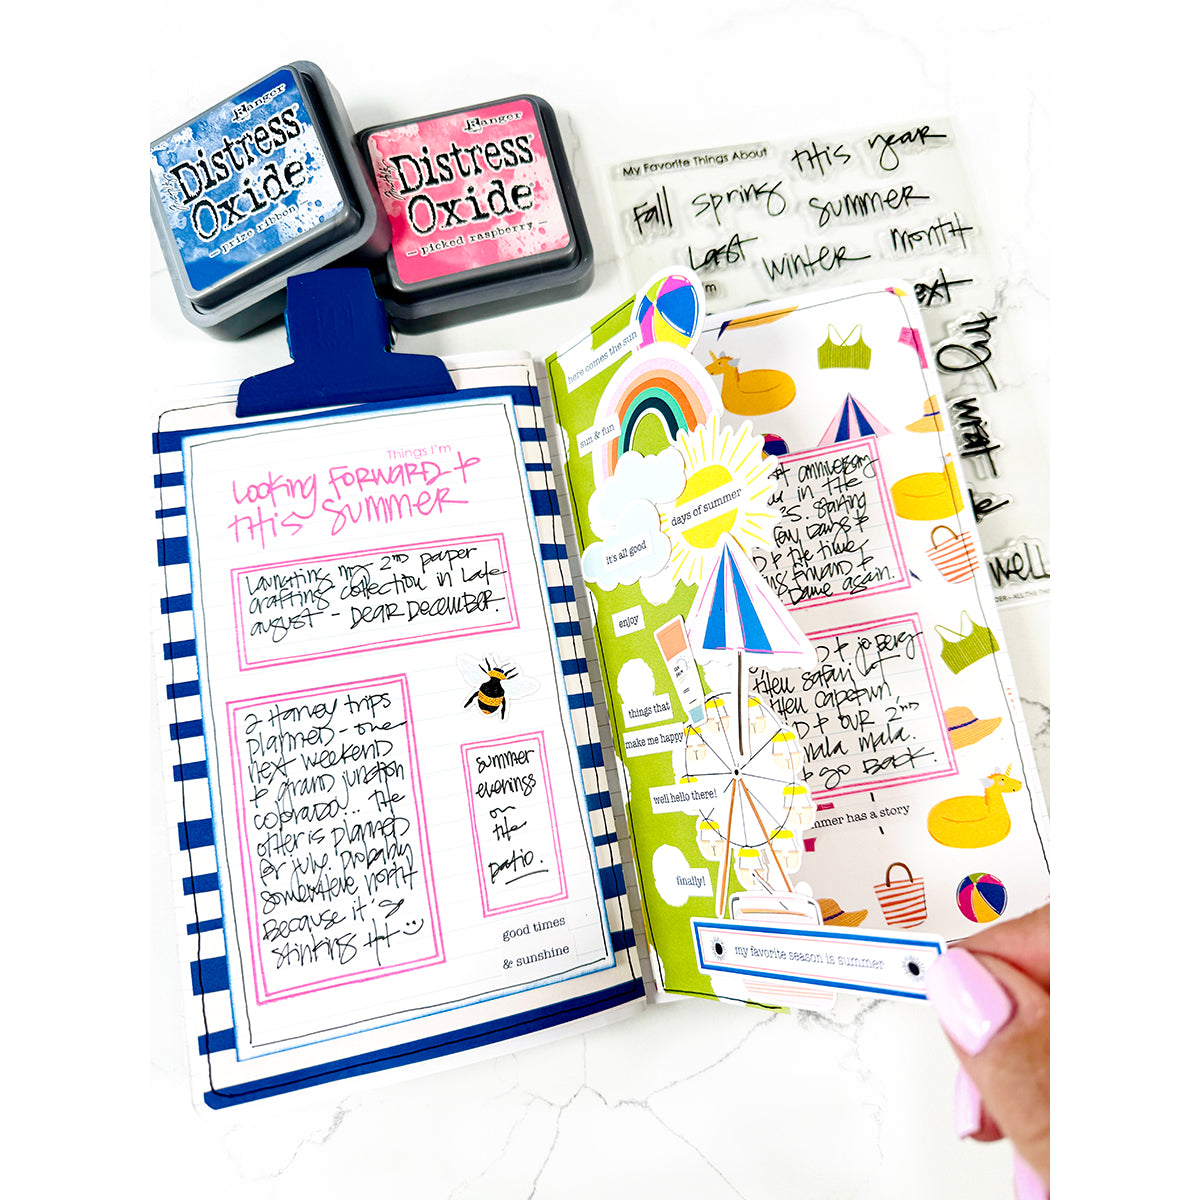 Ranger
Distress
Oxide
— prize ribbon —
Ranger
Distress
Oxide
— picked raspberry —
My Favorite Things About
this year
Fall spring summer
Last winter month
Things I'm
Looking FORWARD to
this summer
Launching my 2nd paper
crafting collection in Late
august - DEAR DECEMBER.
2 Harvey trips
planned - one
next weekend
to grand junction
colorado... the
other is planned
for July. probably
somewhere north
Because it's
stinking Hot
summer
evenings
on
the
patio.
good times
& sunshine
here comes the sun
sun & fun
days of summer
it's all good
enjoy
things that
make me happy
well hello there!
finally!
my favorite season is summer
anniversary
in the
Starting
Days &
the time
again.
Joberg
then safari
then capetown,
our 2nd
mala mala.
to go Back.
summer has a story
well